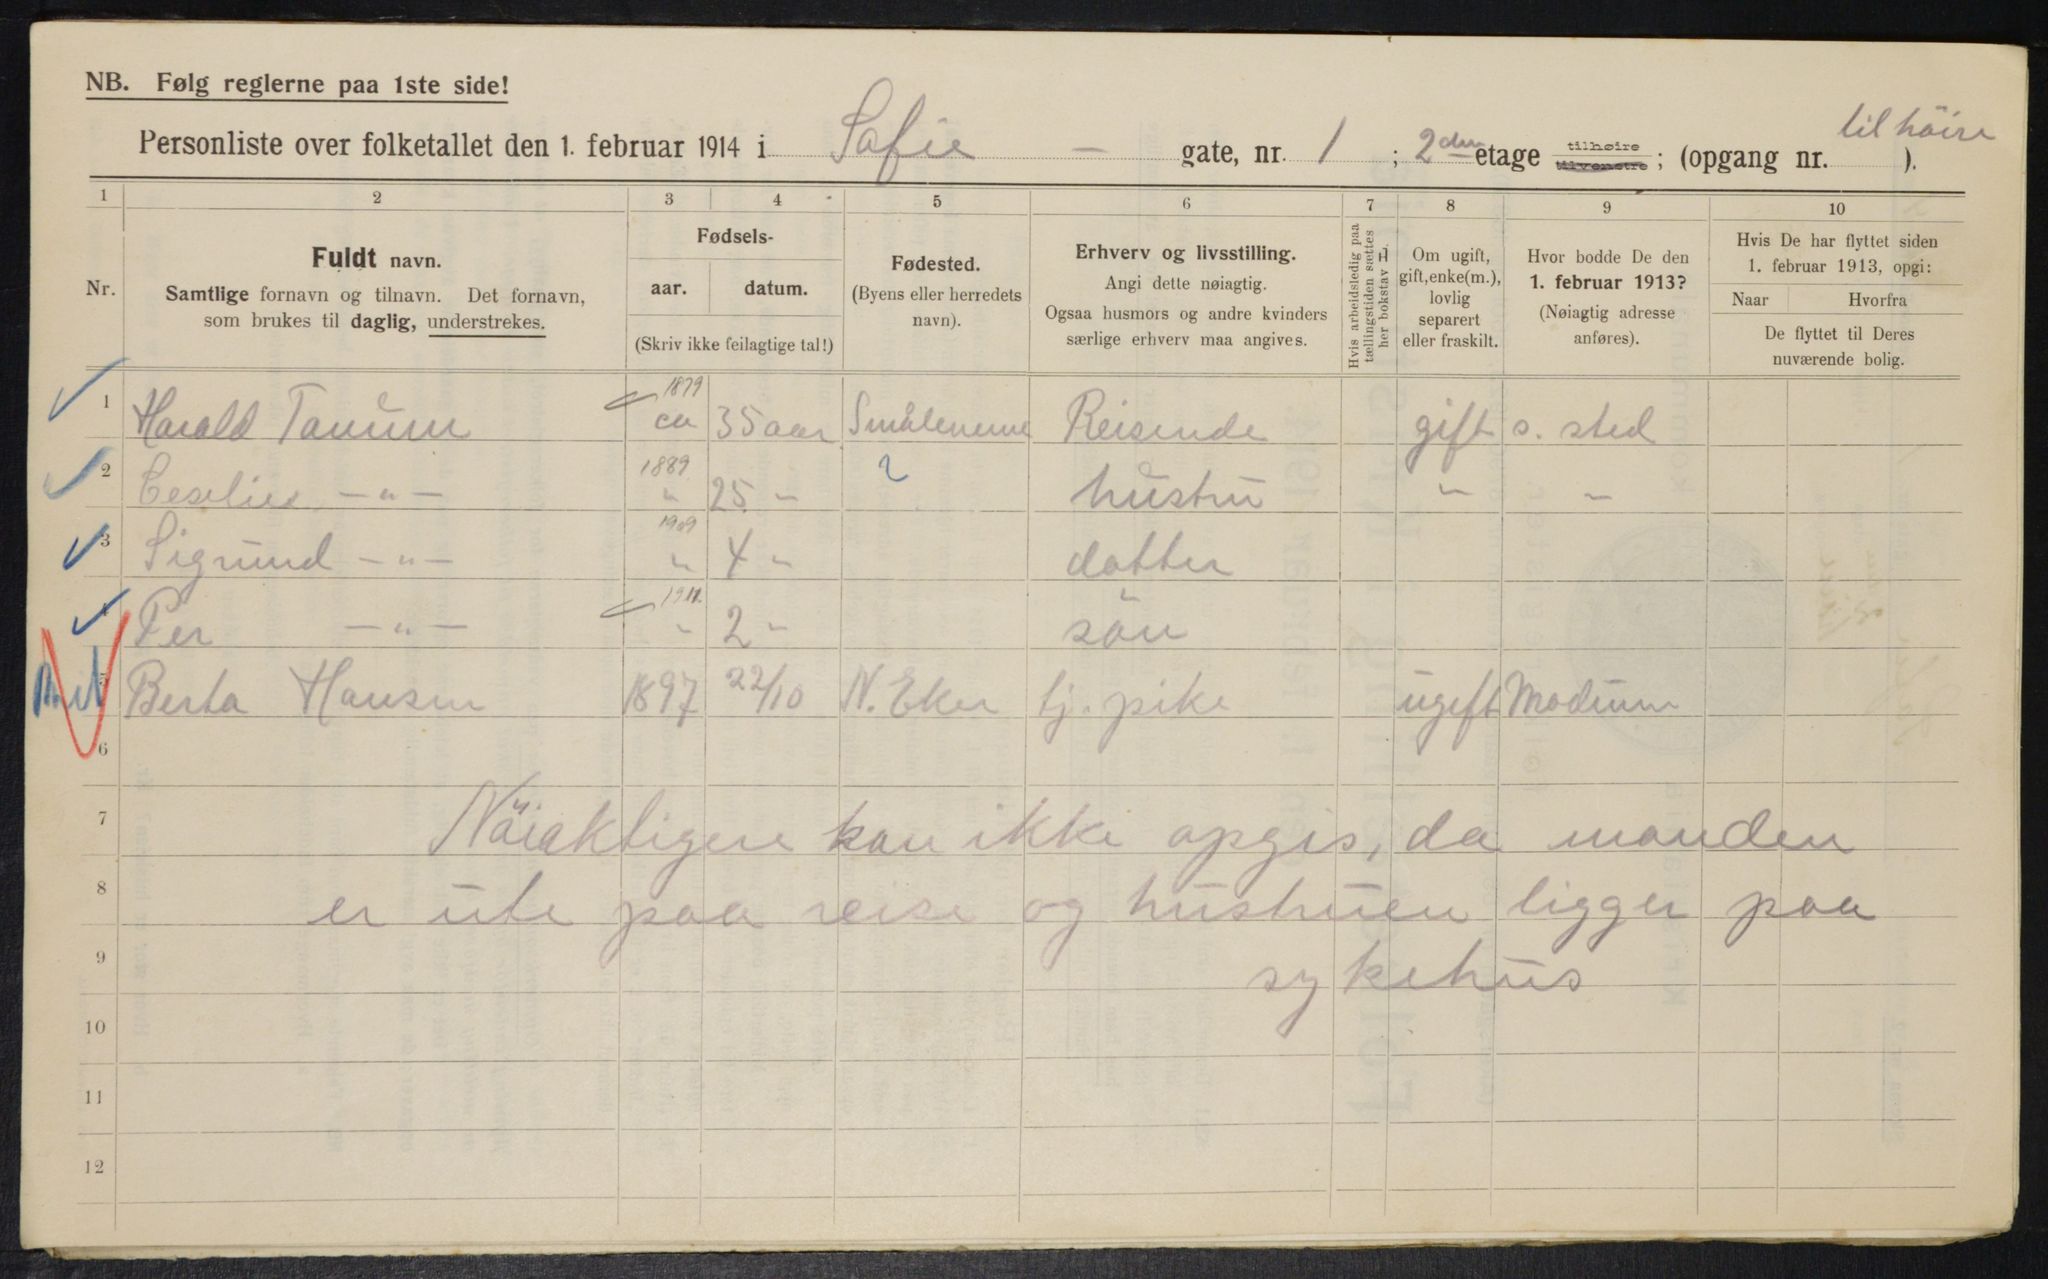 NB. Følg reglerne paa 1ste side!
til höire
Personliste over folketallet den 1. februar 1914 i Safie - gate, nr. 1 ; 2den etage tilhøire tilvenstre ; (opgang nr. ).
1 2 3 4 5 6 7 8 9 10
Nr.
Fuldt navn.
Samtlige fornavn og tilnavn. Det fornavn,
som brukes til daglig, understrekes.
Fødsels-
aar. datum.
(Skriv ikke feilagtige tal!)
Fødested.
(Byens eller herredets
navn).
Erhverv og livsstilling.
Angi dette nøiagtig.
Ogsaa husmors og andre kvinders
særlige erhverv maa angives.
Hvis arbeidsledig paa
tællingstiden sættes
her bokstav L.
Om ugift,
gift, enke(m.),
lovlig
separert
eller fraskilt.
Hvor bodde De den
1. februar 1913?
(Nøiagtig adresse
anføres).
Hvis De har flyttet siden
1. februar 1913, opgi:
Naar Hvorfra
De flyttet til Deres
nuværende bolig.
1879
1 Harald Tanŭm ca 35 aar Smålenene Reisende gift s. sted
1889
2 Ceselie -"- " 25 " ? hŭstru " "
1909
3 Sigrŭnd -"- " 4 " datter
1911.
4 Per -"- " 2 " sön
5 Berta Hansen 1897 22/10 N. Eker tj. pike ugift Modŭm
6
7 Nöiaktigere kan ikke opgis, da manden
8 er ŭte paa reise og hŭstrŭen ligger paa
9 sykehŭs
10
11
12